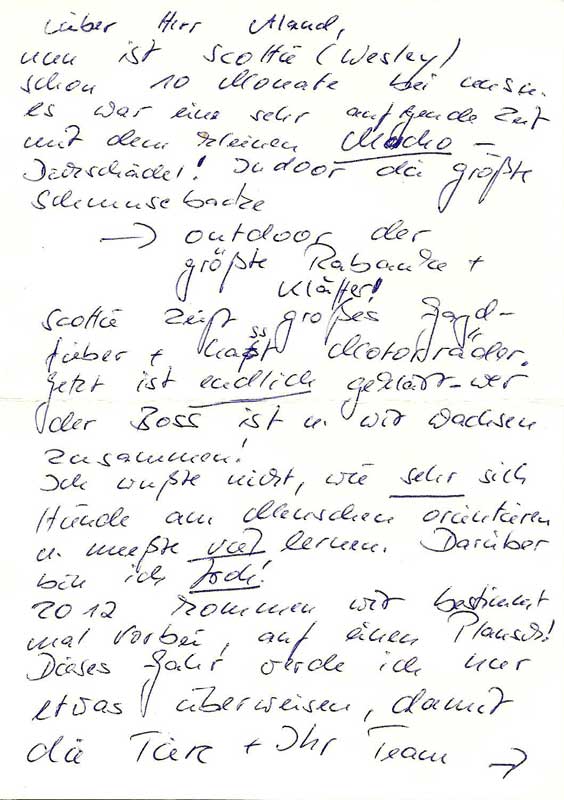 Lieber Herr Aland,
nun ist Scottie (Wesley)
schon 10 Monate bei uns u.
es war eine sehr aufregende Zeit
mit dem kleinen Macho –
Dickschädel! Indoor die größte
Schmusebacke
→ outdoor der
größte Rabauke +
Kläffer!
Scottie zeigt großes Jagd-
fieber + hasst Motorräder.
Jetzt ist endlich geklärt – wer
der Boss ist u. wir wachsen
zusammen!
Ich wußte nicht, wie sehr sich
Hunde am Menschen orientieren
u. mußte viel lernen. Darüber
bin ich froh!
2012 kommen wir bestimmt
mal vorbei, auf einen Plausch!
Dieses Jahr werde ich nur
etwas überweisen, damit
die Tiere + Ihr Team →